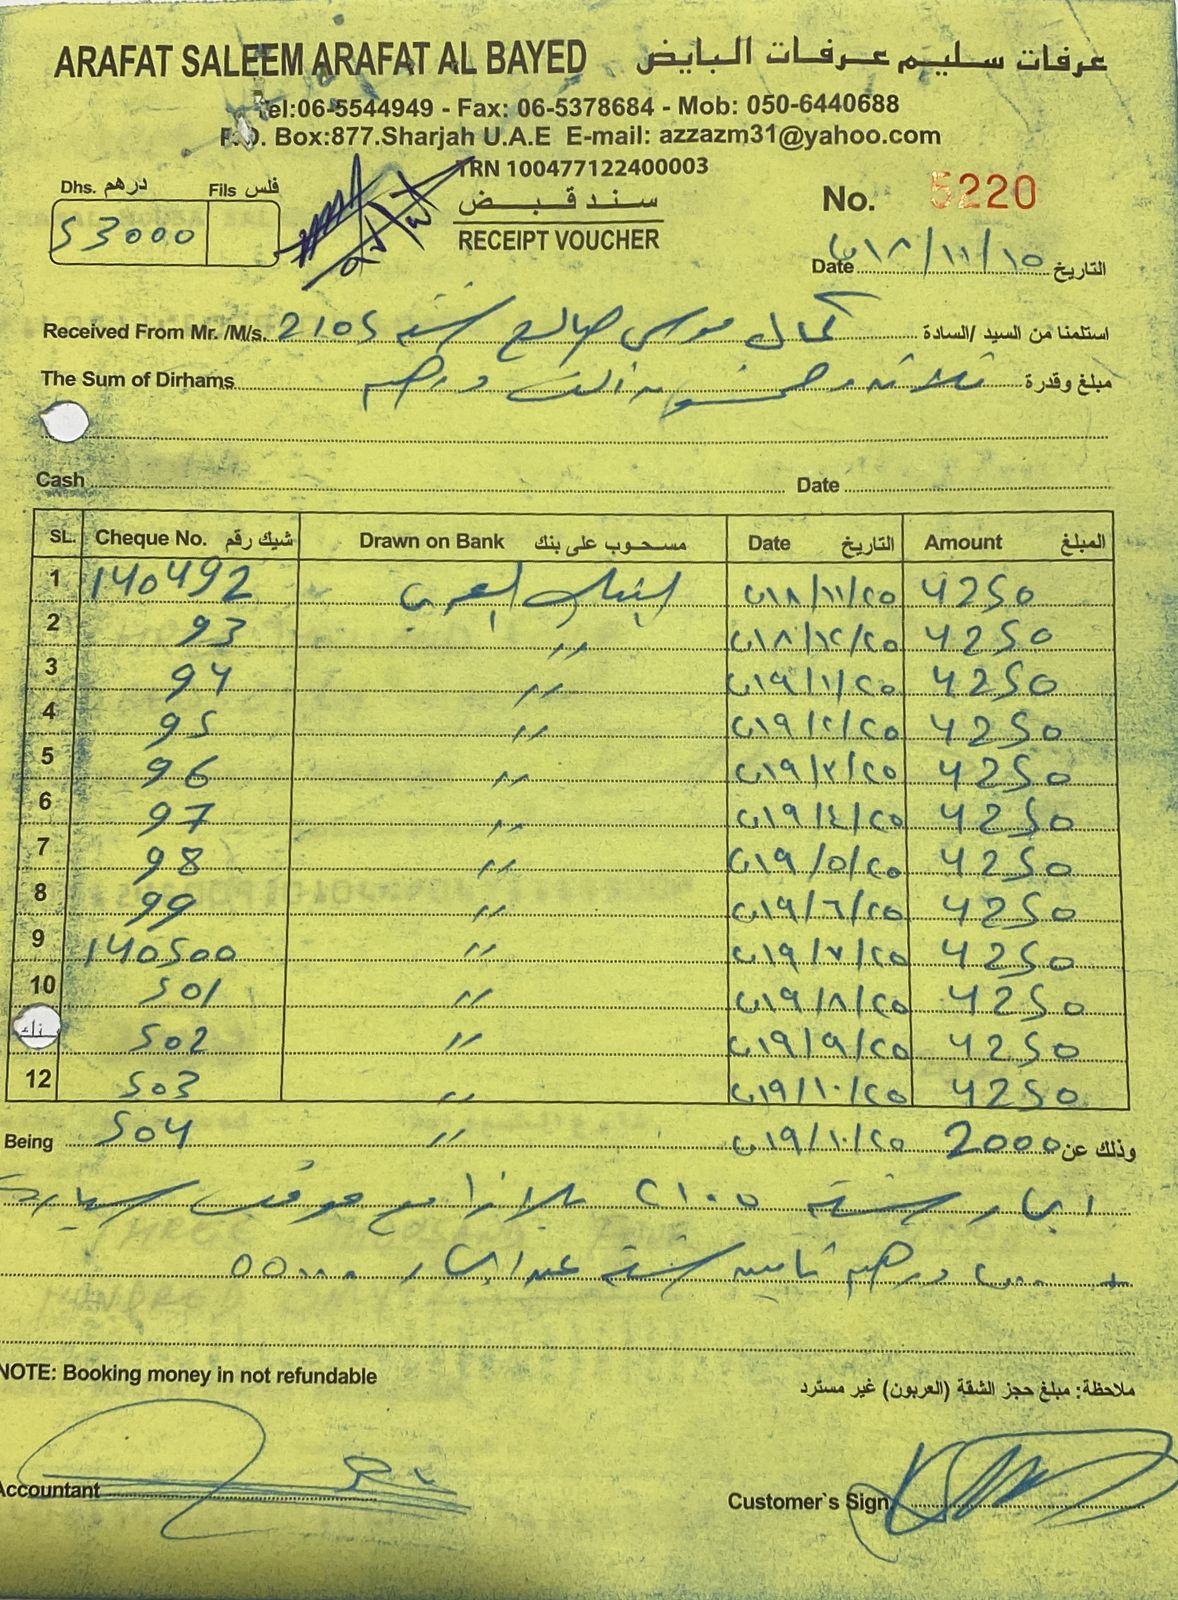 ARAFAT SALEEM ARAFAT AL BAYED عرفات سليم عرفات البايض
Tel:06-5544949 - Fax: 06-5378684 - Mob: 050-6440688
P.O. Box:877.Sharjah U.A.E E-mail: azzazm31@yahoo.com
TRN 100477122400003
Dhs. درهم Fils فلس
53000
سند قبض
RECEIPT VOUCHER
No. 5220
Date ٢٠١٨/١١/١٥ التاريخ
Received From Mr. /M/s. 2105 شقة كمال موسى صالح استلمنا من السيد /السادة
The Sum of Dirhams ثلاثة وخمسون الف درهم مبلغ وقدرة
Cash Date
SL. Cheque No. شيك رقم Drawn on Bank مسحوب على بنك Date التاريخ Amount المبلغ
1 140492 البنك العربي ٢٠١٨/١١/٢٥ 4250
2 93 〃 ٢٠١٨/١٢/٢٥ 4250
3 94 〃 ٢٠١٩/١/٢٥ 4250
4 95 〃 ٢٠١٩/٢/٢٥ 4250
5 96 〃 ٢٠١٩/٣/٢٥ 4250
6 97 〃 ٢٠١٩/٤/٢٥ 4250
7 98 〃 ٢٠١٩/٥/٢٥ 4250
8 99 〃 ٢٠١٩/٦/٢٥ 4250
9 140500 〃 ٢٠١٩/٧/٢٥ 4250
10 501 〃 ٢٠١٩/٨/٢٥ 4250
502 〃 ٢٠١٩/٩/٢٥ 4250
12 503 〃 ٢٠١٩/١٠/٢٥ 4250
Being 504 〃 ٢٠١٩/١٠/٢٥ 2000 وذلك عن
ايجار شقة ٢١٠٥ بلازا مع موقف سيارة
+ ٢٠٠٠ درهم تامين شقة ايجار
NOTE: Booking money in not refundable
ملاحظة: مبلغ حجز الشقة (العربون) غير مسترد
Accountant
Customer`s Sign